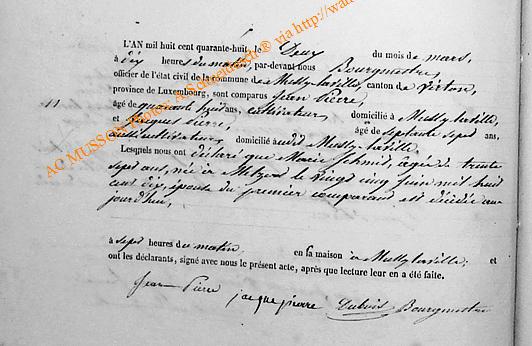 L'AN mil huit cent quarante-huit, le Deux du mois de mars,
à dix heures du matin, par-devant nous Bourgmestre,
officier de l'état civil de la commune de Mussy-la-ville, canton de Virton,
province de Luxembourg, sont comparus Jean Pierre,
11 âgé de quarante huit ans, cultivateur, domicilié à Mussy-la-ville,
et Jacques Pierre, âgé de septante sept ans,
cultivateur, domicilié audit Mussy-la-ville.
Lesquels nous ont déclaré que Marie Schmid, agée de trente
sept ans, née à le vingt cinq juin mil huit
cent dix, épouse du premier comparant est décédée au
jourd'hui,
à sept heures du matin en sa maison à Mussy-la-ville; et
ont les déclarants, signé avec nous le présent acte, après que lecture leur en a été faite.
Jean Pierre jacque pierre Dubois Bourgmestre
AC MUSSON